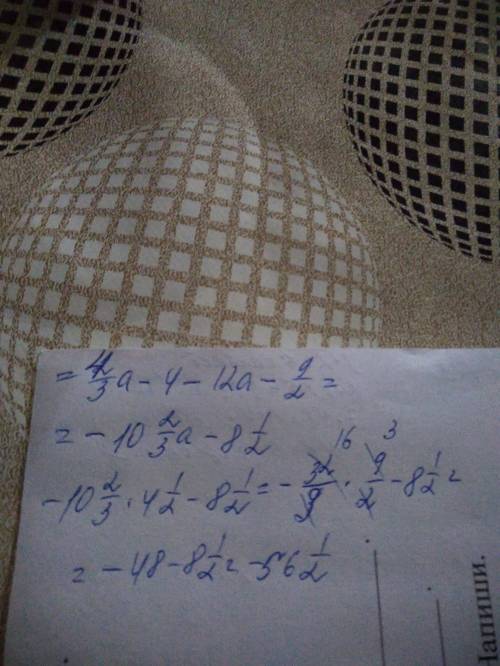 = 4/3 a - 4 - 12a - 9/2 =
= - 10 2/3 a - 8 1/2
- 10 2/3 · 4 1/2 - 8 1/2 = - 32/3 · 9/2 - 8 1/2 =
16 3
= - 48 - 8 1/2 = - 56 1/2
Напиши.